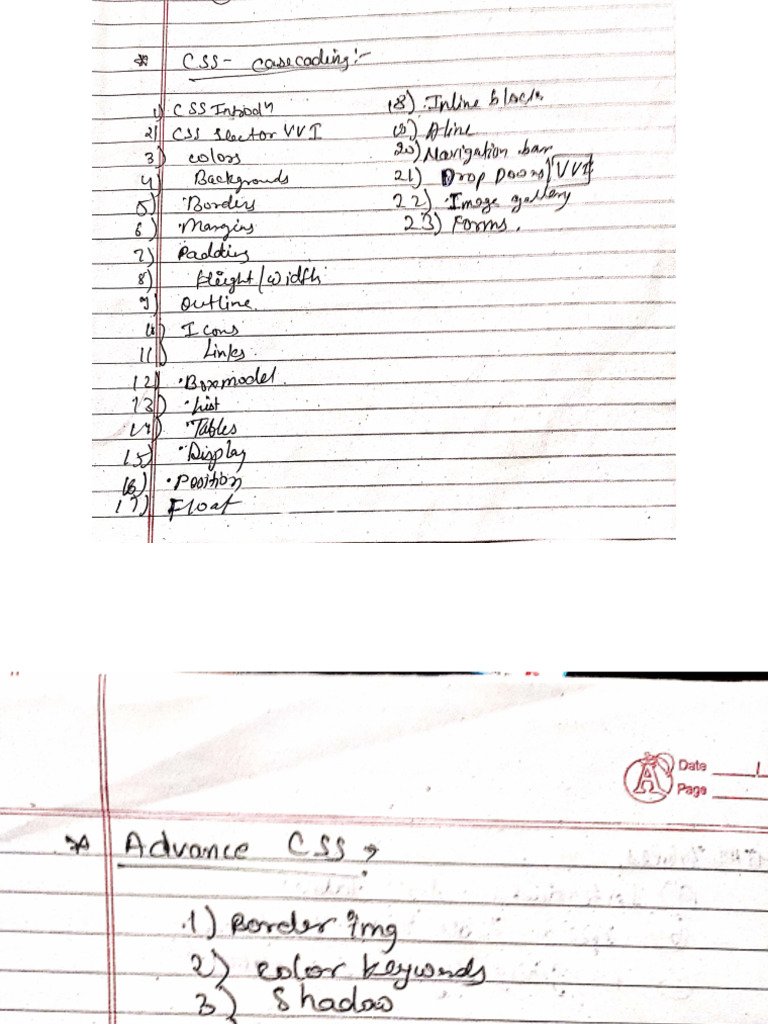 * CSS - Casecading :-
1) CSS Introdn
2) CSS Slector VVI
3) colors
4) Backgrouds
5) Borders
6) Margins
7) Padding
8) Height / width
9) Outline
10) Icons
11) Links
12) Boxmodel
13) List
14) Tables
15) Display
16) Position
17) Float
18) Inline block
19) Aline
20) Navigation bar
21) Drop Doons VVI
22) Image gallery
23) Forms.
Date
Page
* Advance CSS →
1) Border img
2) color keywords
3) Shadow